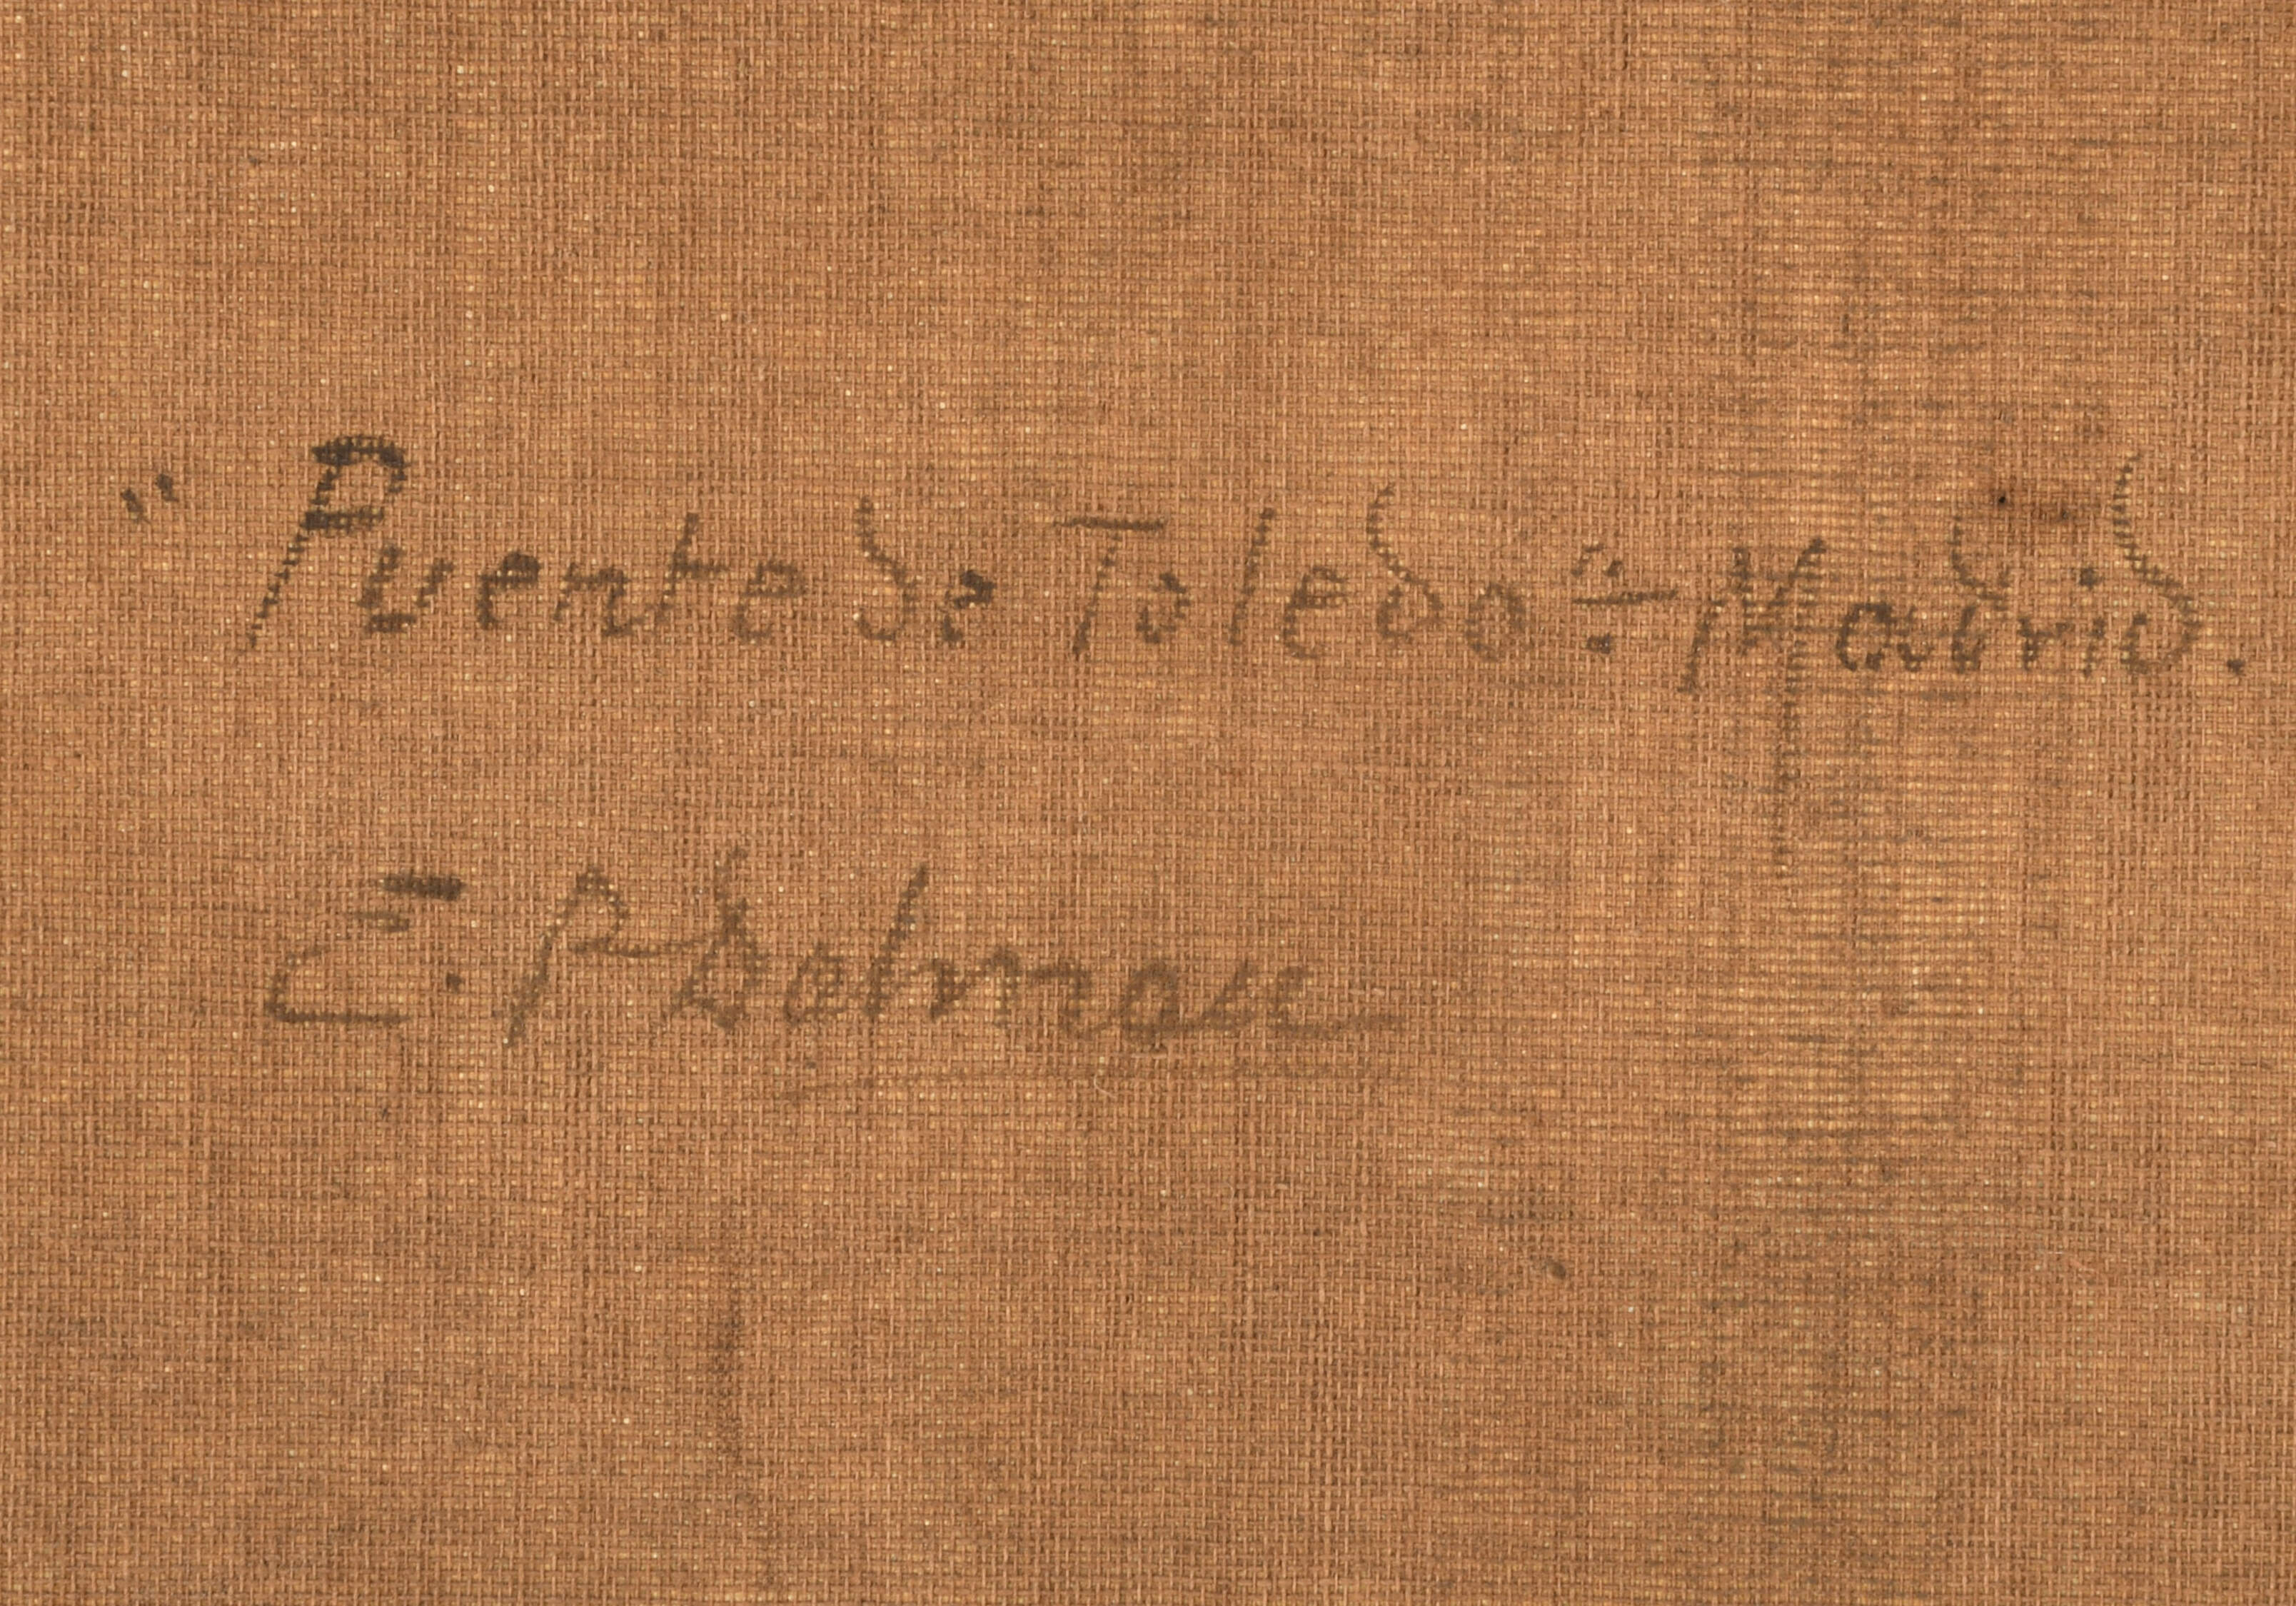 "Puente de Toledo".- Madrid.
E.